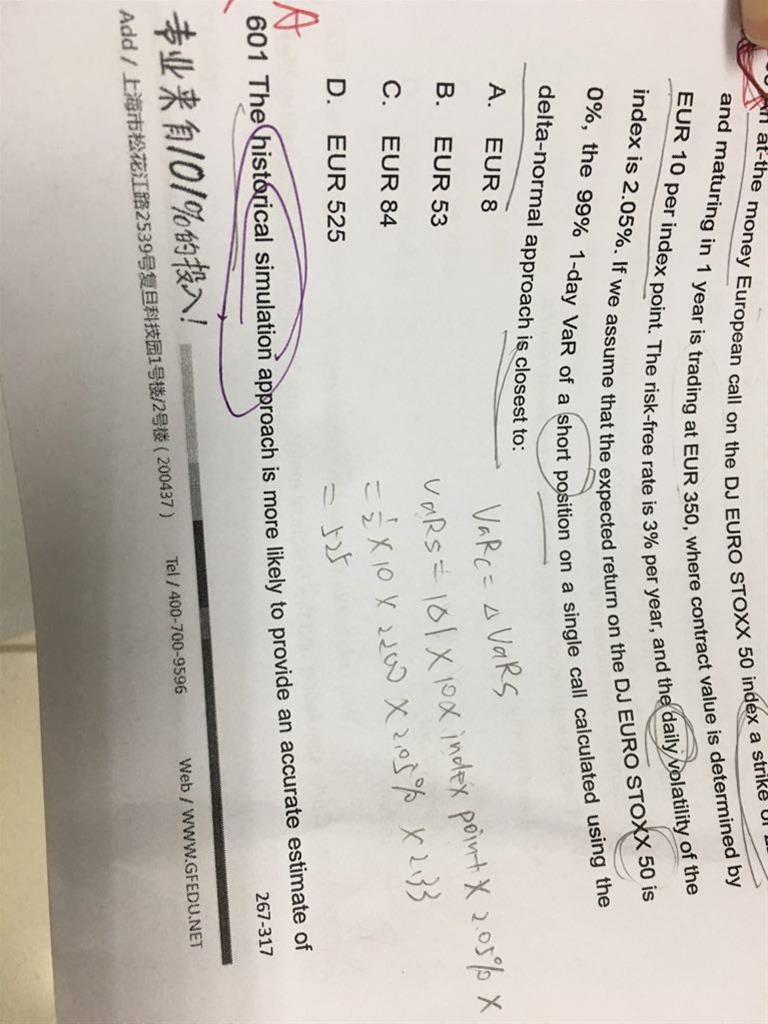 at-the money European call on the DJ EURO STOXX 50 index a strike
and maturing in 1 year is trading at EUR 350, where contract value is determined by
EUR 10 per index point. The risk-free rate is 3% per year, and the daily volatility of the
index is 2.05%. If we assume that the expected return on the DJ EURO STOXX 50 is
0%, the 99% 1-day VaR of a short position on a single call calculated using the
delta-normal approach is closest to:
A. EUR 8
B. EUR 53
C. EUR 84
D. EUR 525
VaRc = Δ VaRs
VaRs = 10 X index point X 2.05% X
= ½ X 10 X 2200 X 2.05% X 2.33
= 525
A
601 The historical simulation approach is more likely to provide an accurate estimate of
267-317
专业来自101%的投入!
Add / 上海市松花江路2539号复旦科技园1号楼/2号楼 ( 200437 ) Tel / 400-700-9596 Web / WWW.GFEDU.NET